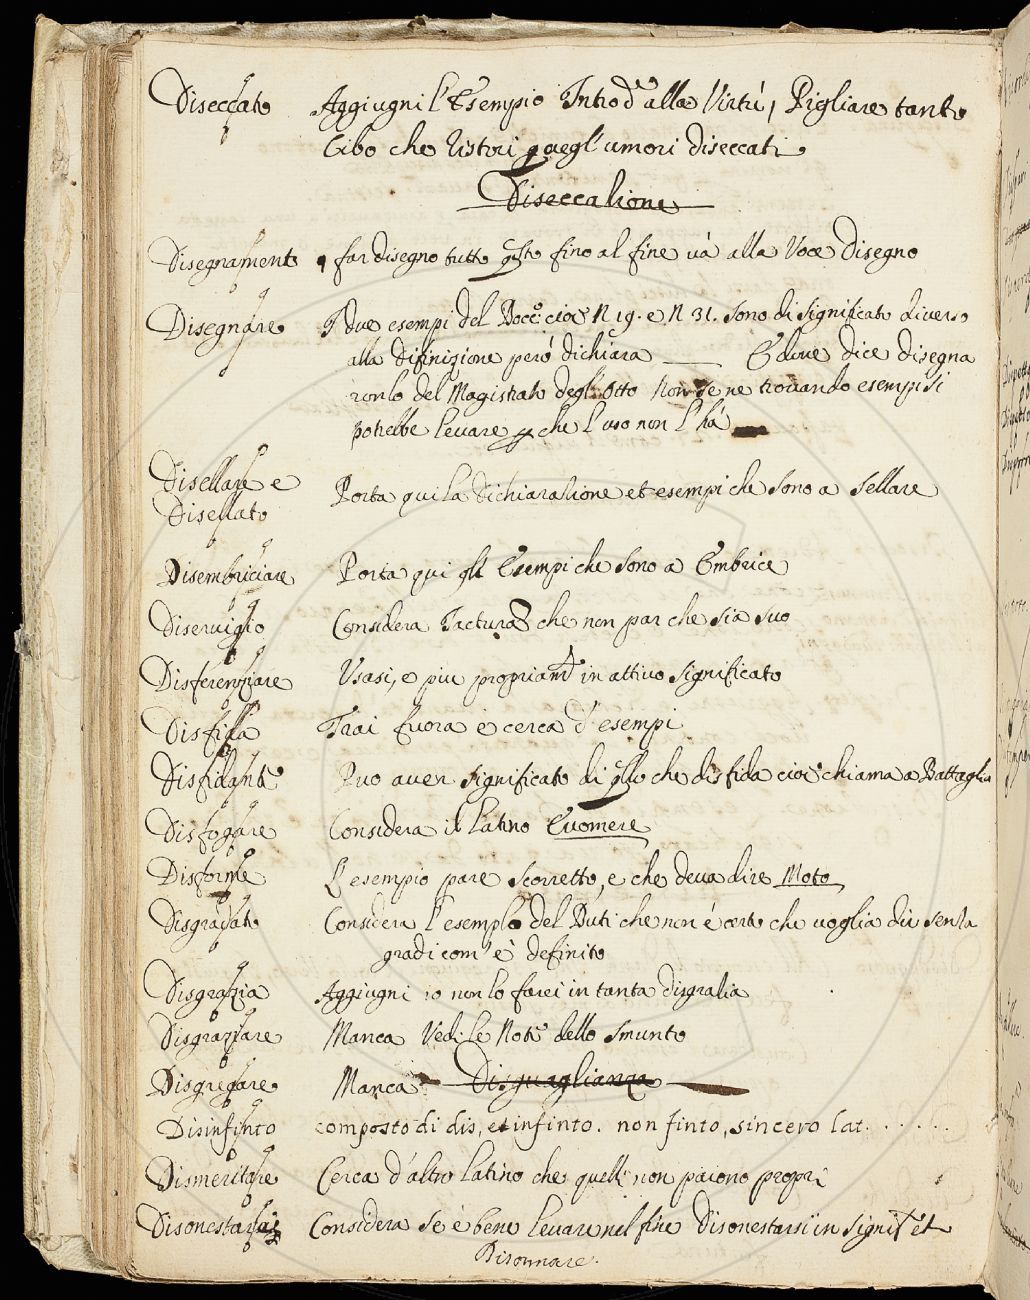 Diseccato Aggiugni l'Esempio Introd.e alla Virtù, Pigliare tanto
Cibo che ristori quegl'umori diseccati
Diseccazione
Disegnamento far disegno tutto questo fino al fine và alla Voce Disegno
Disegnare I due esempi del Bocc.o cioè N 19. e N 31. sono di significato diverso
alla Difinizione però dichiara E dove dice disegna
ronlo del Magistrato degl'Otto Non se ne trovando esempi si
potrebbe levare che l'uso non l'hà
Disellare e
Disellato Porta qui la Dichiarazione et esempi che sono a Sellare
Disembriciare Porta qui gli Esempi che sono a Embrice
Diservigio Considera Jactura che non par che sia suo
Disferenziare Usasi, e piu propriam.te in attivo significato
Disfida Trai fuora e cerca d'esempi
Disfidante Puo aver significato di quello che disfida cioè chiama a Battaglia
Disfogare Considera il latino Evomere
Disforme L'esempio pare scorretto, e che deva dire Moto
Disgradato Considera l'esemplo del Buti che non é certo che voglia dir senza
gradi com'è definito
Disgrazia Aggiugni io non lo farei in tanta disgrazia
Disgraziare Manca Vedi le Note dello Smunto
Disgregare Manca Disguaglianza
Disinfinto composto di dis, et infinto. non finto, sincero lat. . . . . . .
Dismeritare Cerca d'altro latino che quelli non paiono propri
Disonestarsi Considera se è bene levare nel fine Disonestarsi in signif. et
Disonnare.